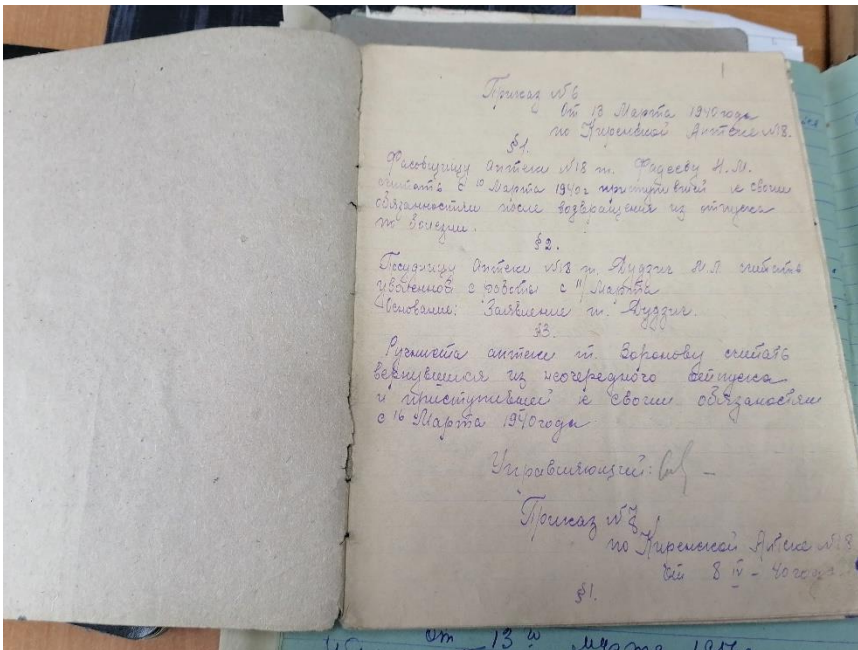 Приказ №6
От 13 Марта 1940 года
по Киренской Аптеке №18.
§1.
Фасовщицу Аптеки №18 т. Фадееву Н.М.
считать с 10 Марта 1940г приступившей к своим
обязанностям после возвращения из отпуска
по болезни.
§2.
Посудницу Аптеки №18 т. Дудзич М.Л. считать
уволенной с работы с 11 Марта
Основание: Заявление т. Дудзич.
§3.
Ручниста аптеки т. Воронову считать
вернувшейся из неочередного отпуска
и приступившей к своим обязаностям
с 16 Марта 1940 года
Управляющий:
Приказ №7
по Киренской Аптеке №18
От 8 IV - 40 года
§1.
от 13 марта